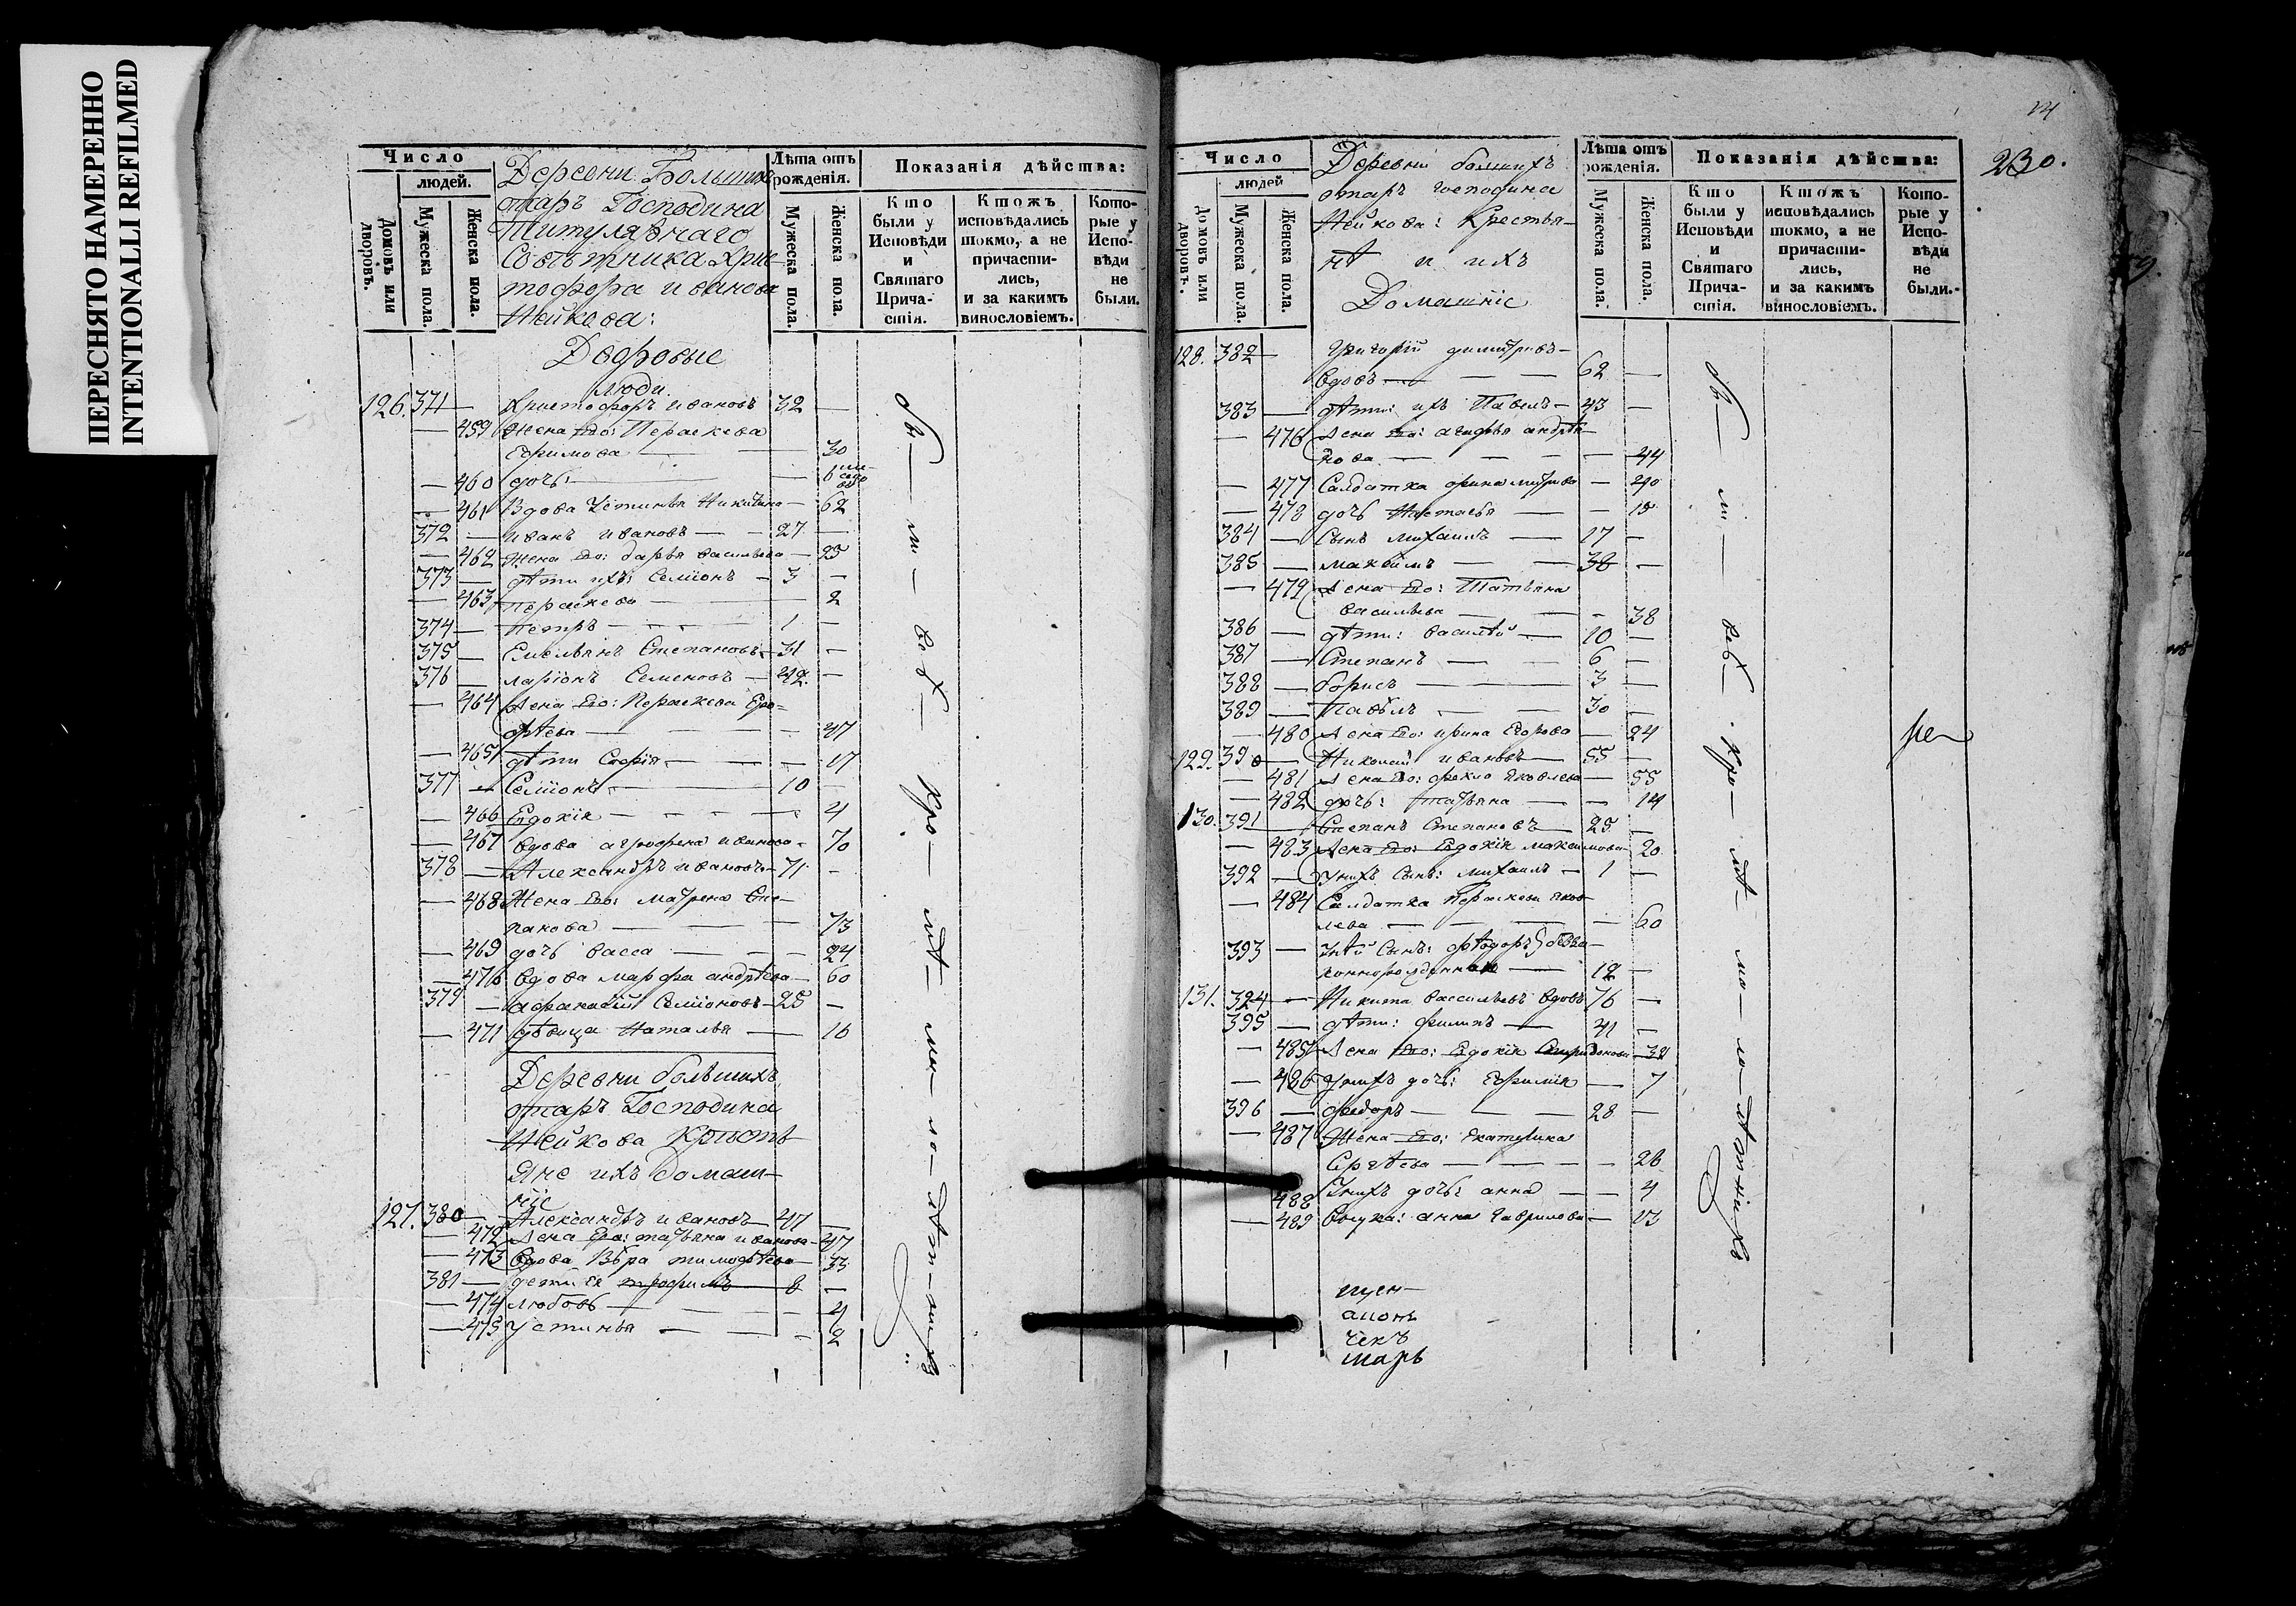 ПЕРЕСНЯТО НАМЕРЕННО
INTENTIONALLI REFILMED
Число
людей.
Домовъ или дворовъ.
Мужеска пола.
Женска пола.
Деревни Большихъ
отаръ Господина
Титулярнаго
Советника Хрис
тофора иванова
Нейкова:
Лѣта отъ рожденія.
Мужеска пола.
Женска пола.
Показанія дѣйства:
Кто были у Исповѣди и Святаго Прича-стія.
Ктожъ исповѣдались токмо, а не причасти-лись, и за какимъ винословіемъ.
Кото-рые у Испо-вѣди не были.
Дворовые
люди
126. 371 — Христофоръ ивановъ 32 —
— 459 Жена Его: Параскева
Ефимова — — 30
— 460 дочь — 6
— 461 Вдова Устинья Никитина — 62
372 — иванъ ивановъ — 27 —
— 462 Жена Его: дарья васильева — 25
373 — дѣти ихъ: Семіонъ — 3 —
— 463 параскева — 2
374 — петръ — 1 —
375 — Емельянъ Степановъ — 31 —
376 — ларіонъ Семеновъ — 42 —
— 464 жена Его: Параскева Еро-
фѣева — 47
— 465 дѣти Софія — 17
377 — Семіонъ — 10 —
— 466 Евдокія — 4
— 467 вдова агрофена иванова — 70
378 — Александръ ивановъ — 71 —
— 468 Жена Его: матрена Сте-
панова — 73
— 469 дочь васса — 24
— 470 вдова марфа андрѣева — 60
379 — афанасій Семіоновъ — 25 —
— 471 дѣвица Наталья — 16
Деревни большихъ
отаръ Господина
Нейкова Кресть
яне ихъ домаш-
ніе
127. 380 — Александръ ивановъ — 47 —
— 472 жена Его: татьяна иванова — 47
— 473 вдова Вѣра тимофѣева — 33
381 — дети ея трофимъ — 8 —
— 474 любовь — 4
— 475 устинья — 2
14
230.
Число
людей
Домовъ или дворовъ.
Мужеска пола.
Женска пола.
Деревни большихъ
отаръ господина
Нейкова: Крестья-
не и ихъ
Домашніе
Лѣта отъ рожденія.
Мужеска пола.
Женска пола.
Показанія дѣйства:
Кто были у Исповѣди и Святаго Прича-стія.
Ктожъ исповѣдались токмо, а не причасти-лись, и за какимъ винословіемъ.
Кото-рые у Испо-вѣди не были.
128. 382 — Григорій димитріевъ —
вдовъ — 62 —
383 — дѣти: ихъ Павелъ — 43 —
— 476 жена Его: агафья андрѣ-
— 44
— 477 Салдатка — 40
— 478 дочь Настасья — 15
384 — Сынъ михаилъ — 17 —
385 — максимъ — 38 —
— 479 жена Его: Татьяна
васильева — 38
386 — дѣти: василій — 10 —
387 — Степанъ — 6 —
388 — борисъ — 3 —
389 — Павелъ — 30 —
— 480 жена Его: ирина Егорова — 24
129. 390 — Николай ивановъ — 55 —
— 481 жена Его: фекла яковлева — 55
— 482 дочь: татьяна — 14
130. 391 — Степанъ Степановъ — 25 —
— 483 жена Его: Евдокія максимова — 20
392 — Унихъ Сынъ: михаилъ — 1 —
— 484 Салдатка Параскева яков-
лева — 60
393 — Унѣй Сынъ: фѣодоръ безза-
коннорожденный — 12 —
131. 394 — Никита вассильевъ вдовъ 76 —
395 — дѣти: филипъ — 41 —
— 485 жена Его: Евдокія Спиридонова — 38
— 486 Унихъ дочь: Ефимія — 7
396 — федоръ — 28 —
— 487 Жена Его: Екатерина
Сергѣева — 26
— 488 Унихъ дочь: анна — 4
— 489 внука: анна Гаврилова — 13